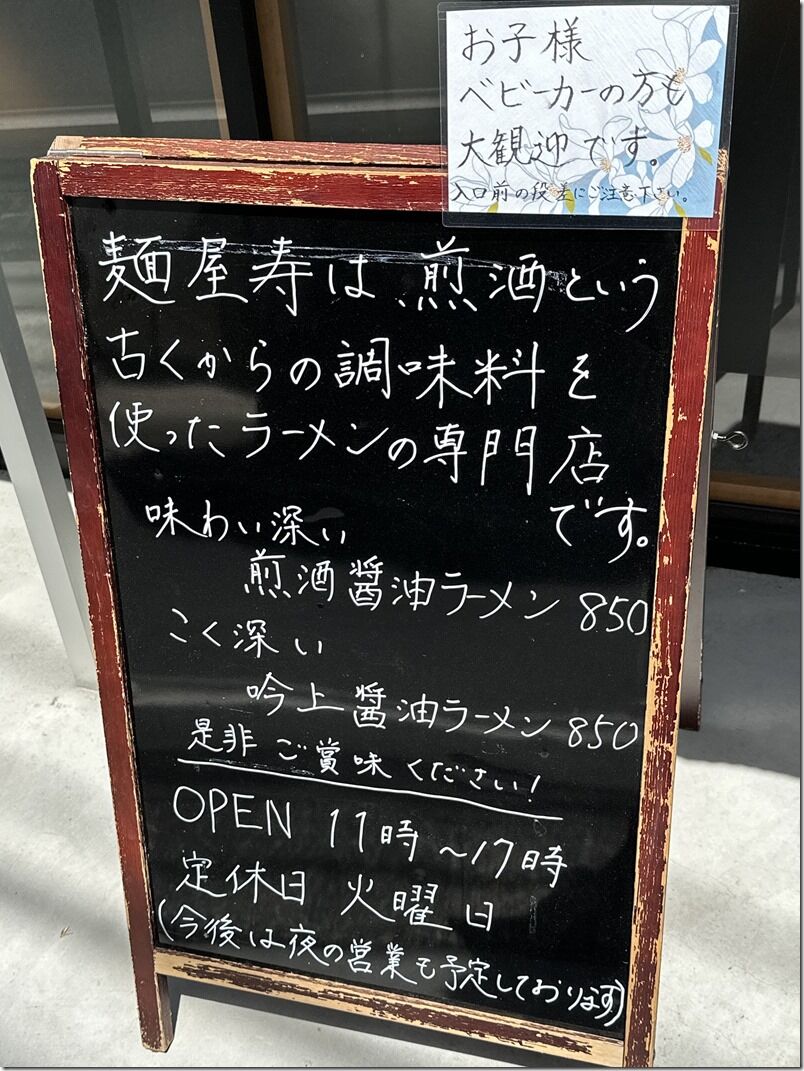 お子様
ベビーカーの方も
大観迎です。
入口前の段差にご注意下さい。
麺屋寿は、煎酒という
古くからの調味料を
使ったラーメンの専門店
です。
味わい深い
煎酒醤油ラーメン 850
こく深い
吟上醤油ラーメン 850
是非ご賞味ください!
OPEN 11時~17時
定休日 火曜日
(今後は夜の営業も予定しております)